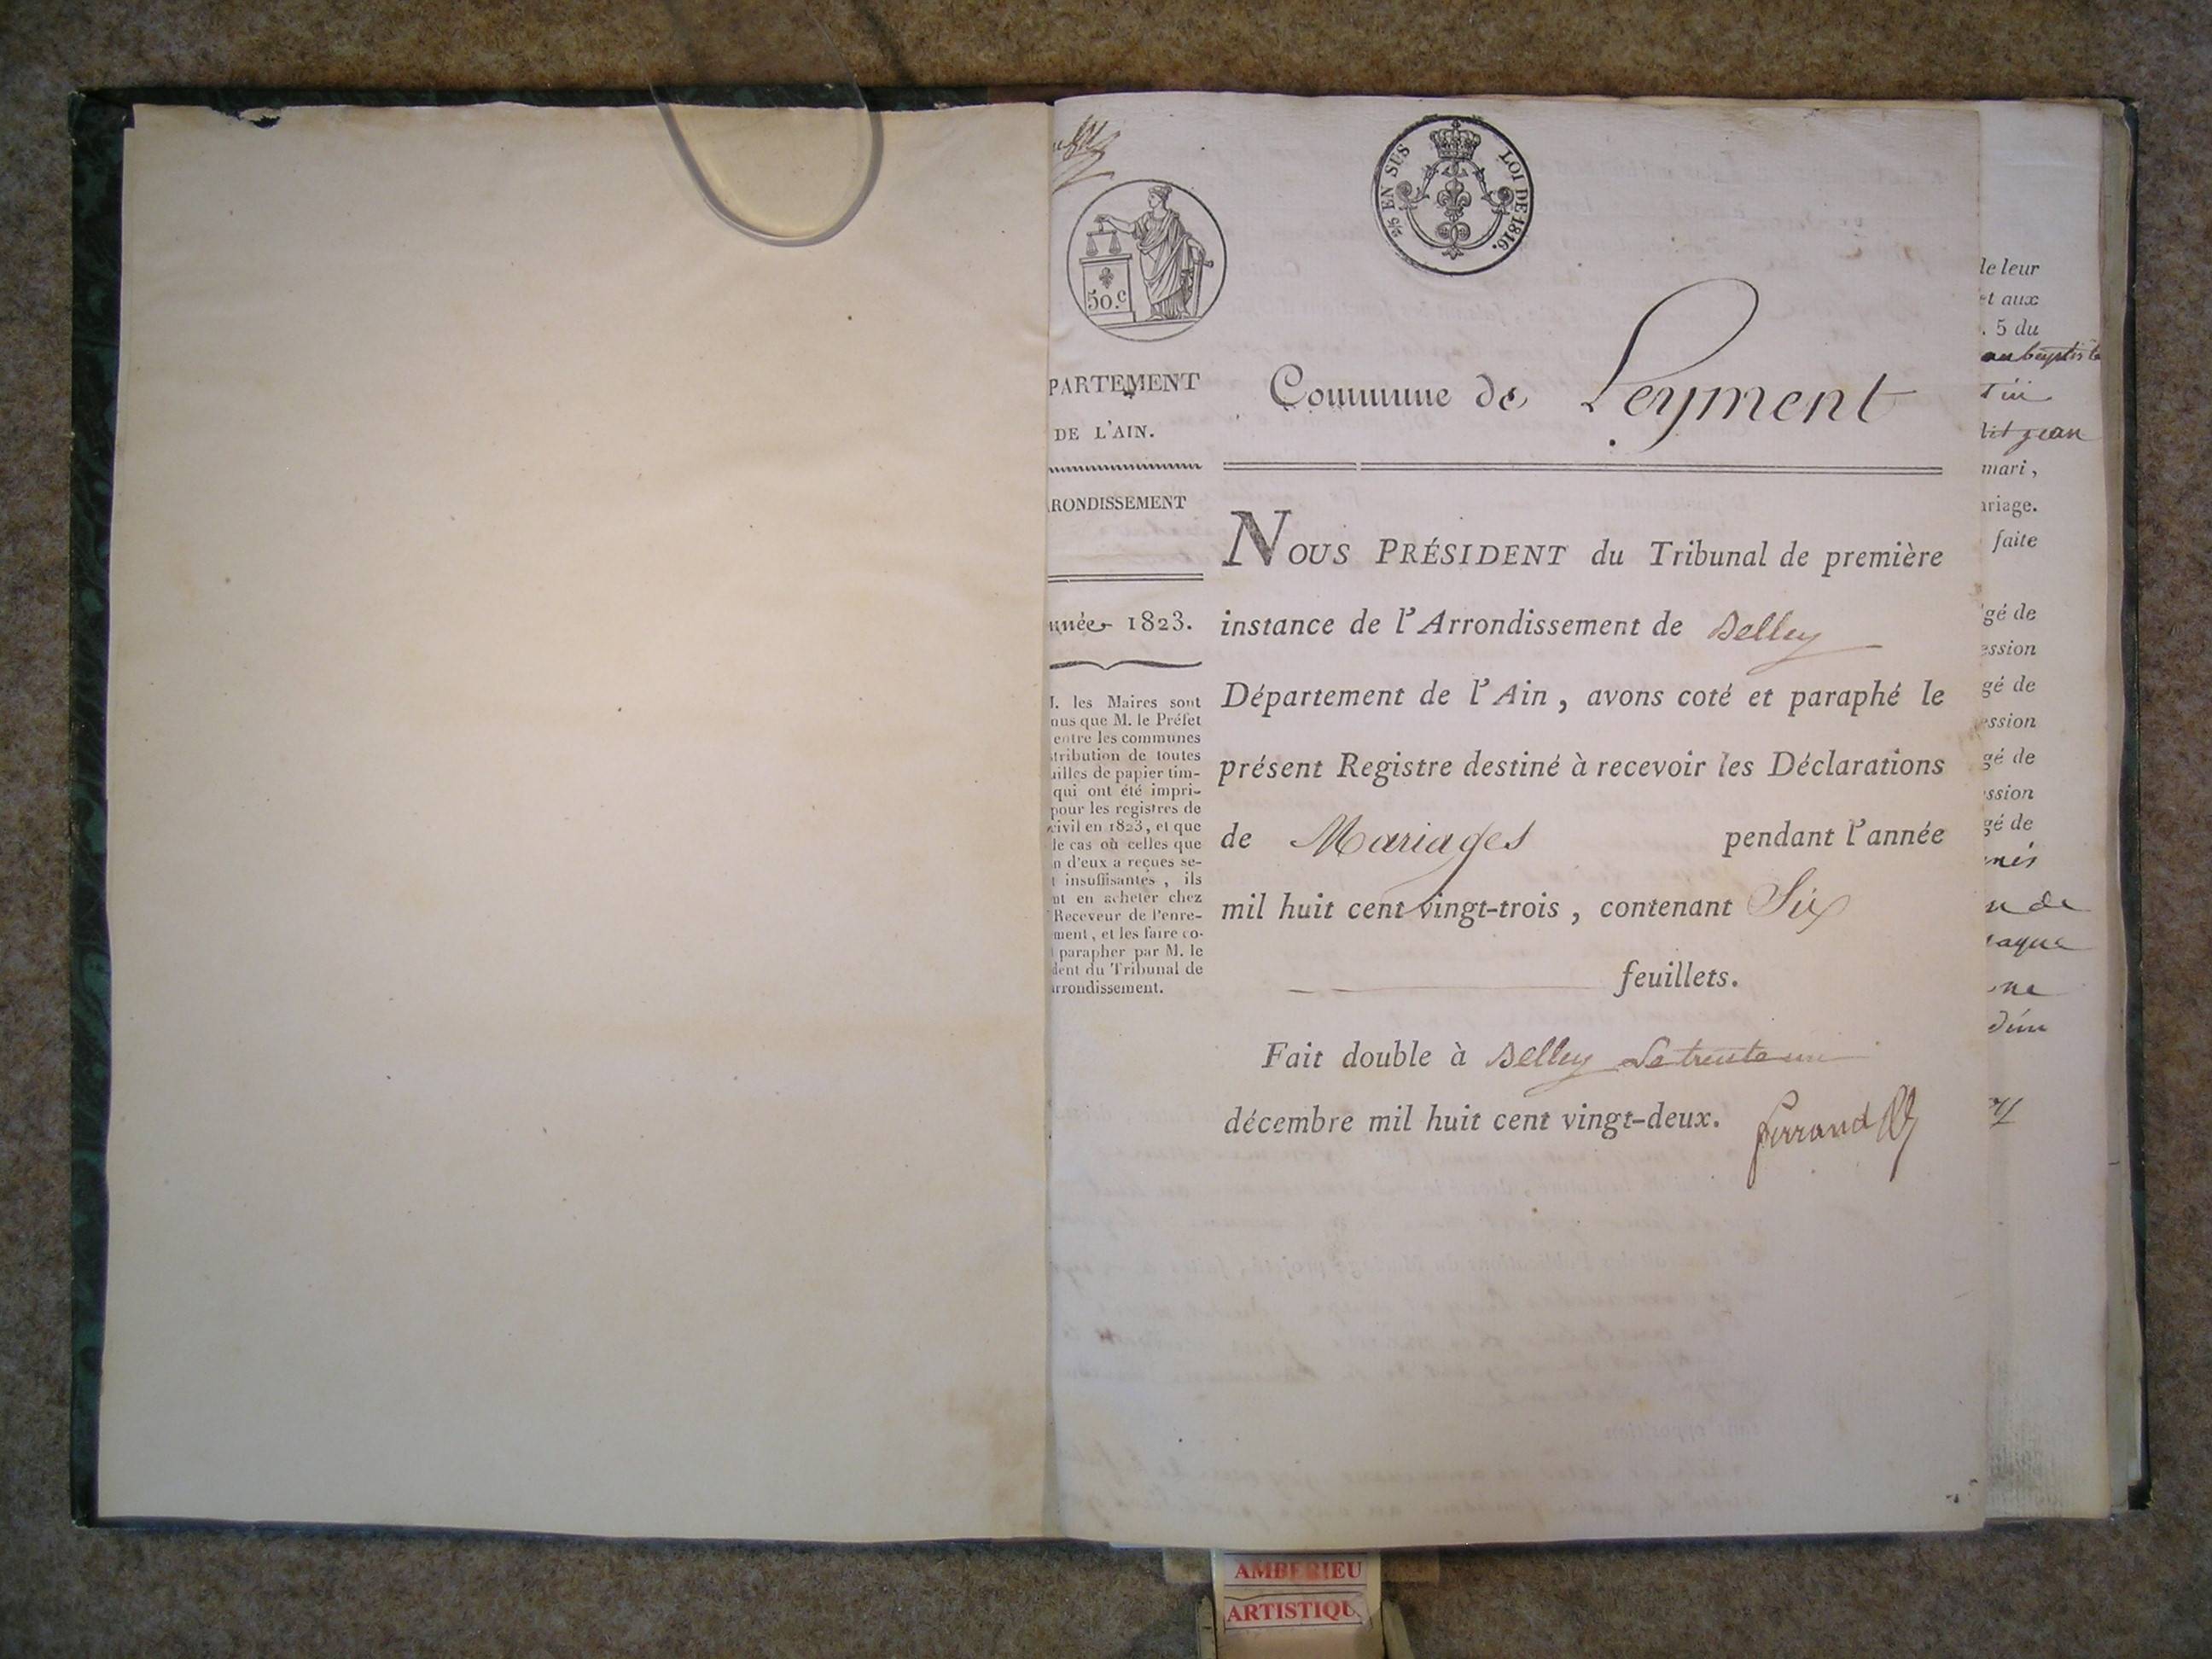 2/5 EN SUS LOI DE 1816.
50.c
PARTEMENT
DE L'AIN.
RONDISSEMENT
nnée 1823.
M. les Maires sont
nus que M. le Préfet
entre les communes
tribution de toutes
uilles de papier tim-
qui ont été impri-
pour les registres de
civil en 1823, et que
le cas où celles que
n d'eux a reçues se-
t insuffisantes, ils
nt en acheter chez
Receveur de l'enre-
ment, et les faire co-
parapher par M. le
dent du Tribunal de
arrondissement.
Commune de Leyment
NOUS PRÉSIDENT du Tribunal de première
instance de l'Arrondissement de Belley
Département de l'Ain, avons coté et paraphé le
présent Registre destiné à recevoir les Déclarations
de Mariages pendant l'année
mil huit cent vingt-trois, contenant Six
feuillets.
Fait double à Belley Le trente un
décembre mil huit cent vingt-deux.
ferrand
le leur
et aux
. 5 du
aubaptiste
dit jean
mari,
ariage.
faite
gé de
ession
gé de
ession
gé de
ession
gé de
n de
aque
ne
AMBERIEU
ARTISTIQU